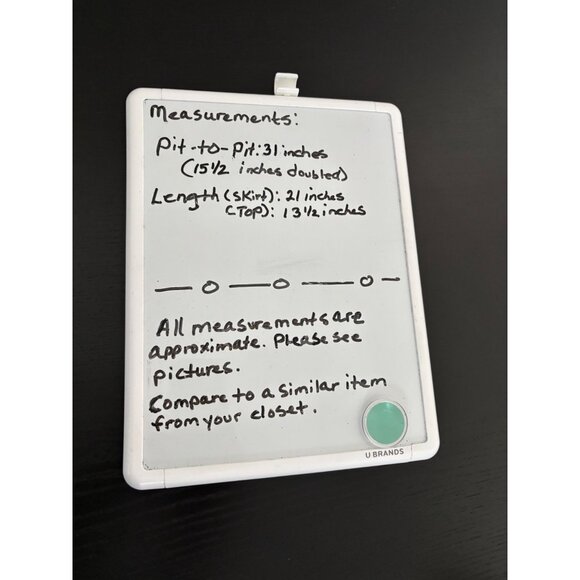 Measurements:
Pit-to-Pit: 31 inches
(15 1/2 inches doubled)
Length (Skirt): 21 inches
(Top): 13 1/2 inches
All measurements are
approximate. Please see
pictures.
Compare to a similar item
from your closet.
U BRANDS